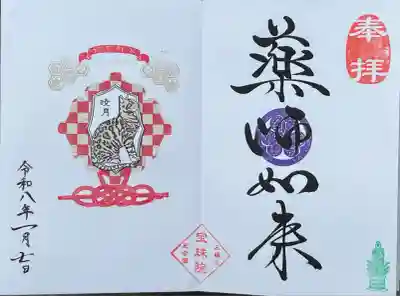 奉拝
薬師如来
暁月
宝珠院
令和八年一月七日